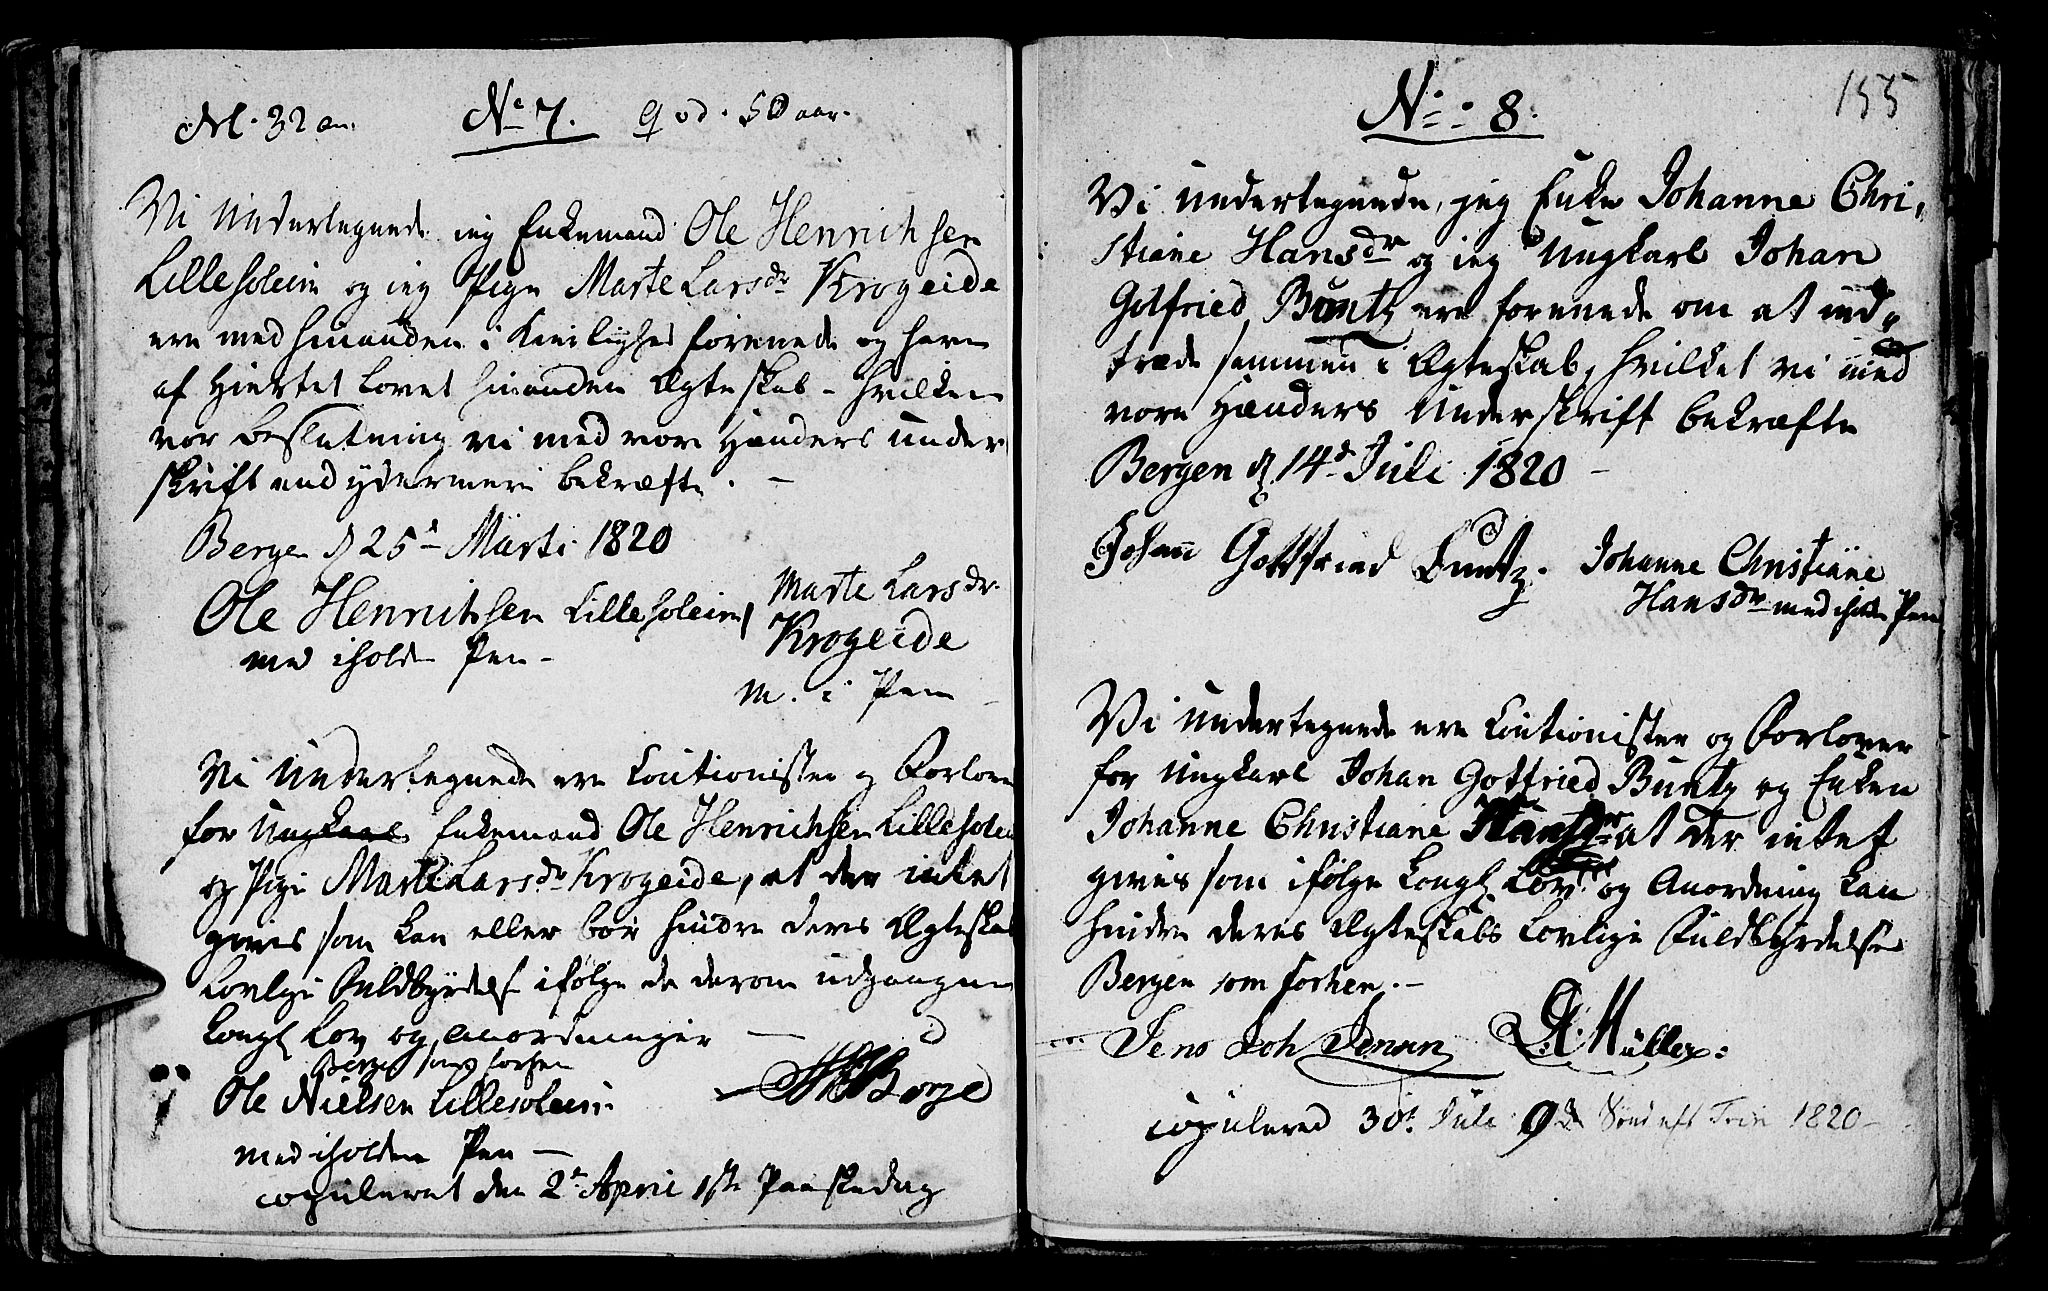 M. 32 aar. No 7. Q od. 50 aar.
Vi Undertegnede jeg Enkemand Ole Henrichsen
Lillesolein og jeg Pige Marte Larsdr Krogeide
ere med hinanden i Kierlighed forenede og have
af Hiertet lovet hinanden Ægteskab – hvilken
vor Beslutning vi med vore Hænders under
skrift end ydermere bekræfte. –
Bergen d 25d Marti 1820
Ole Henrichsen Lillesolein
med iholden Pen –
Marte Larsdr.
Krogeide
m. i Pen
Vi Undertegnede ere Cautionister og Forlovere
for Ungkarl Enkemand Ole Henrichsen Lillesolein
og Pige Marte Larsdr Krogeide, at der intet
gives som kan eller bør hindre deres Ægteskabs
Lovlige Fuldbyrdelse ifølge de derom udgangne
Kongl Lov og Anordninger –
Bergen som forhen
Ole Nielsen Lillesolein
med iholden Pen –
Borge
copuleret den 2d April 1ste Paaskedag
155
No 8.
Vi undertegnede, jeg Enke Johanne Chri,
stiane Hansdr og jeg Ungkarl Johan
Gotfried Buntz ere forenede om at ind,
træde sammen i Ægteskab, hvilket vi med
vore Hænders Underskrift bekræfte
Bergen d 14d Juli 1820 –
Johan Gottfried Buntz. Johanne Christiane
Hansdr med iholden Pen
Vi undertegnede ere Cautionister og Forlovere
for Ungkarl Johan Gotfried Buntz og Enken
Johanne Christiane Hansdr at der intet
gives som ifølge Kongl Lov og Anordning kan
hindre deres Ægteskabs Lovlige Fuldbyrdelse
Bergen som forhen. –
Jens Joh Jensen Müller
copulered 30t Juli 9d Sønd eft Trin 1820 –